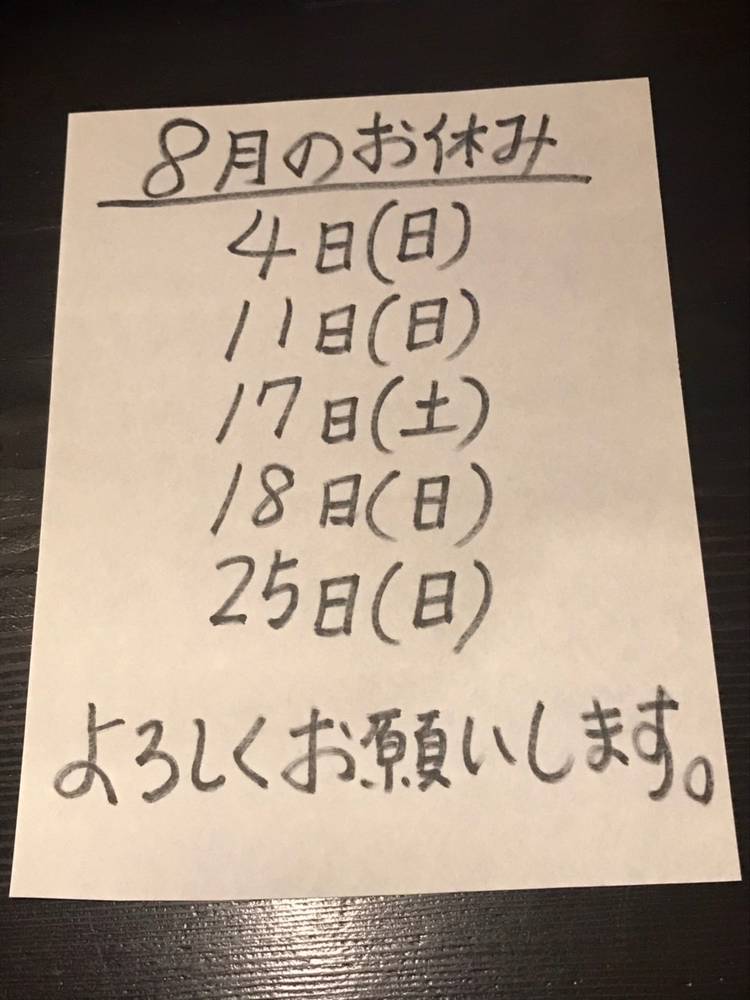 8月のお休み
4日(日)
11日(日)
17日(土)
18日(日)
25日(日)
よろしくお願いします。